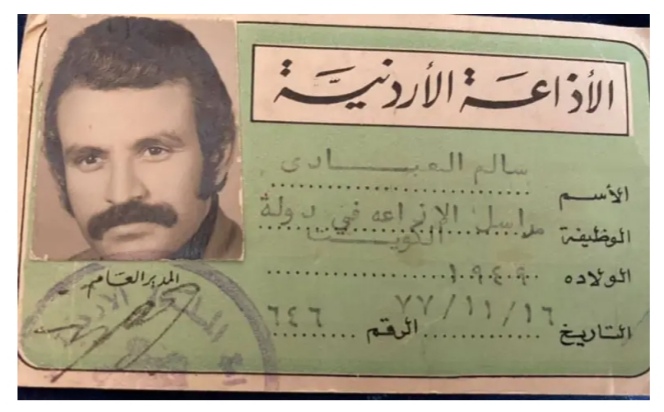 الأذاعة الأردنية
الأســم سالم العبــــادي
الوظيفة مراسل الإذاعه في دولة
الكويت
الولاده ١٩٤٩
التاريخ ٧٧/١١/١٦ الرقم ٦٤٦
المدير العام